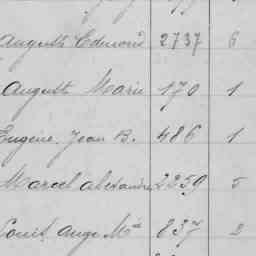 Auguste Edmond 2737 6
Auguste Marie 170 1
Eugène, Jean B. 486 1
Marcel Alexandre 2259 5
Louis Ange Mie 837 2